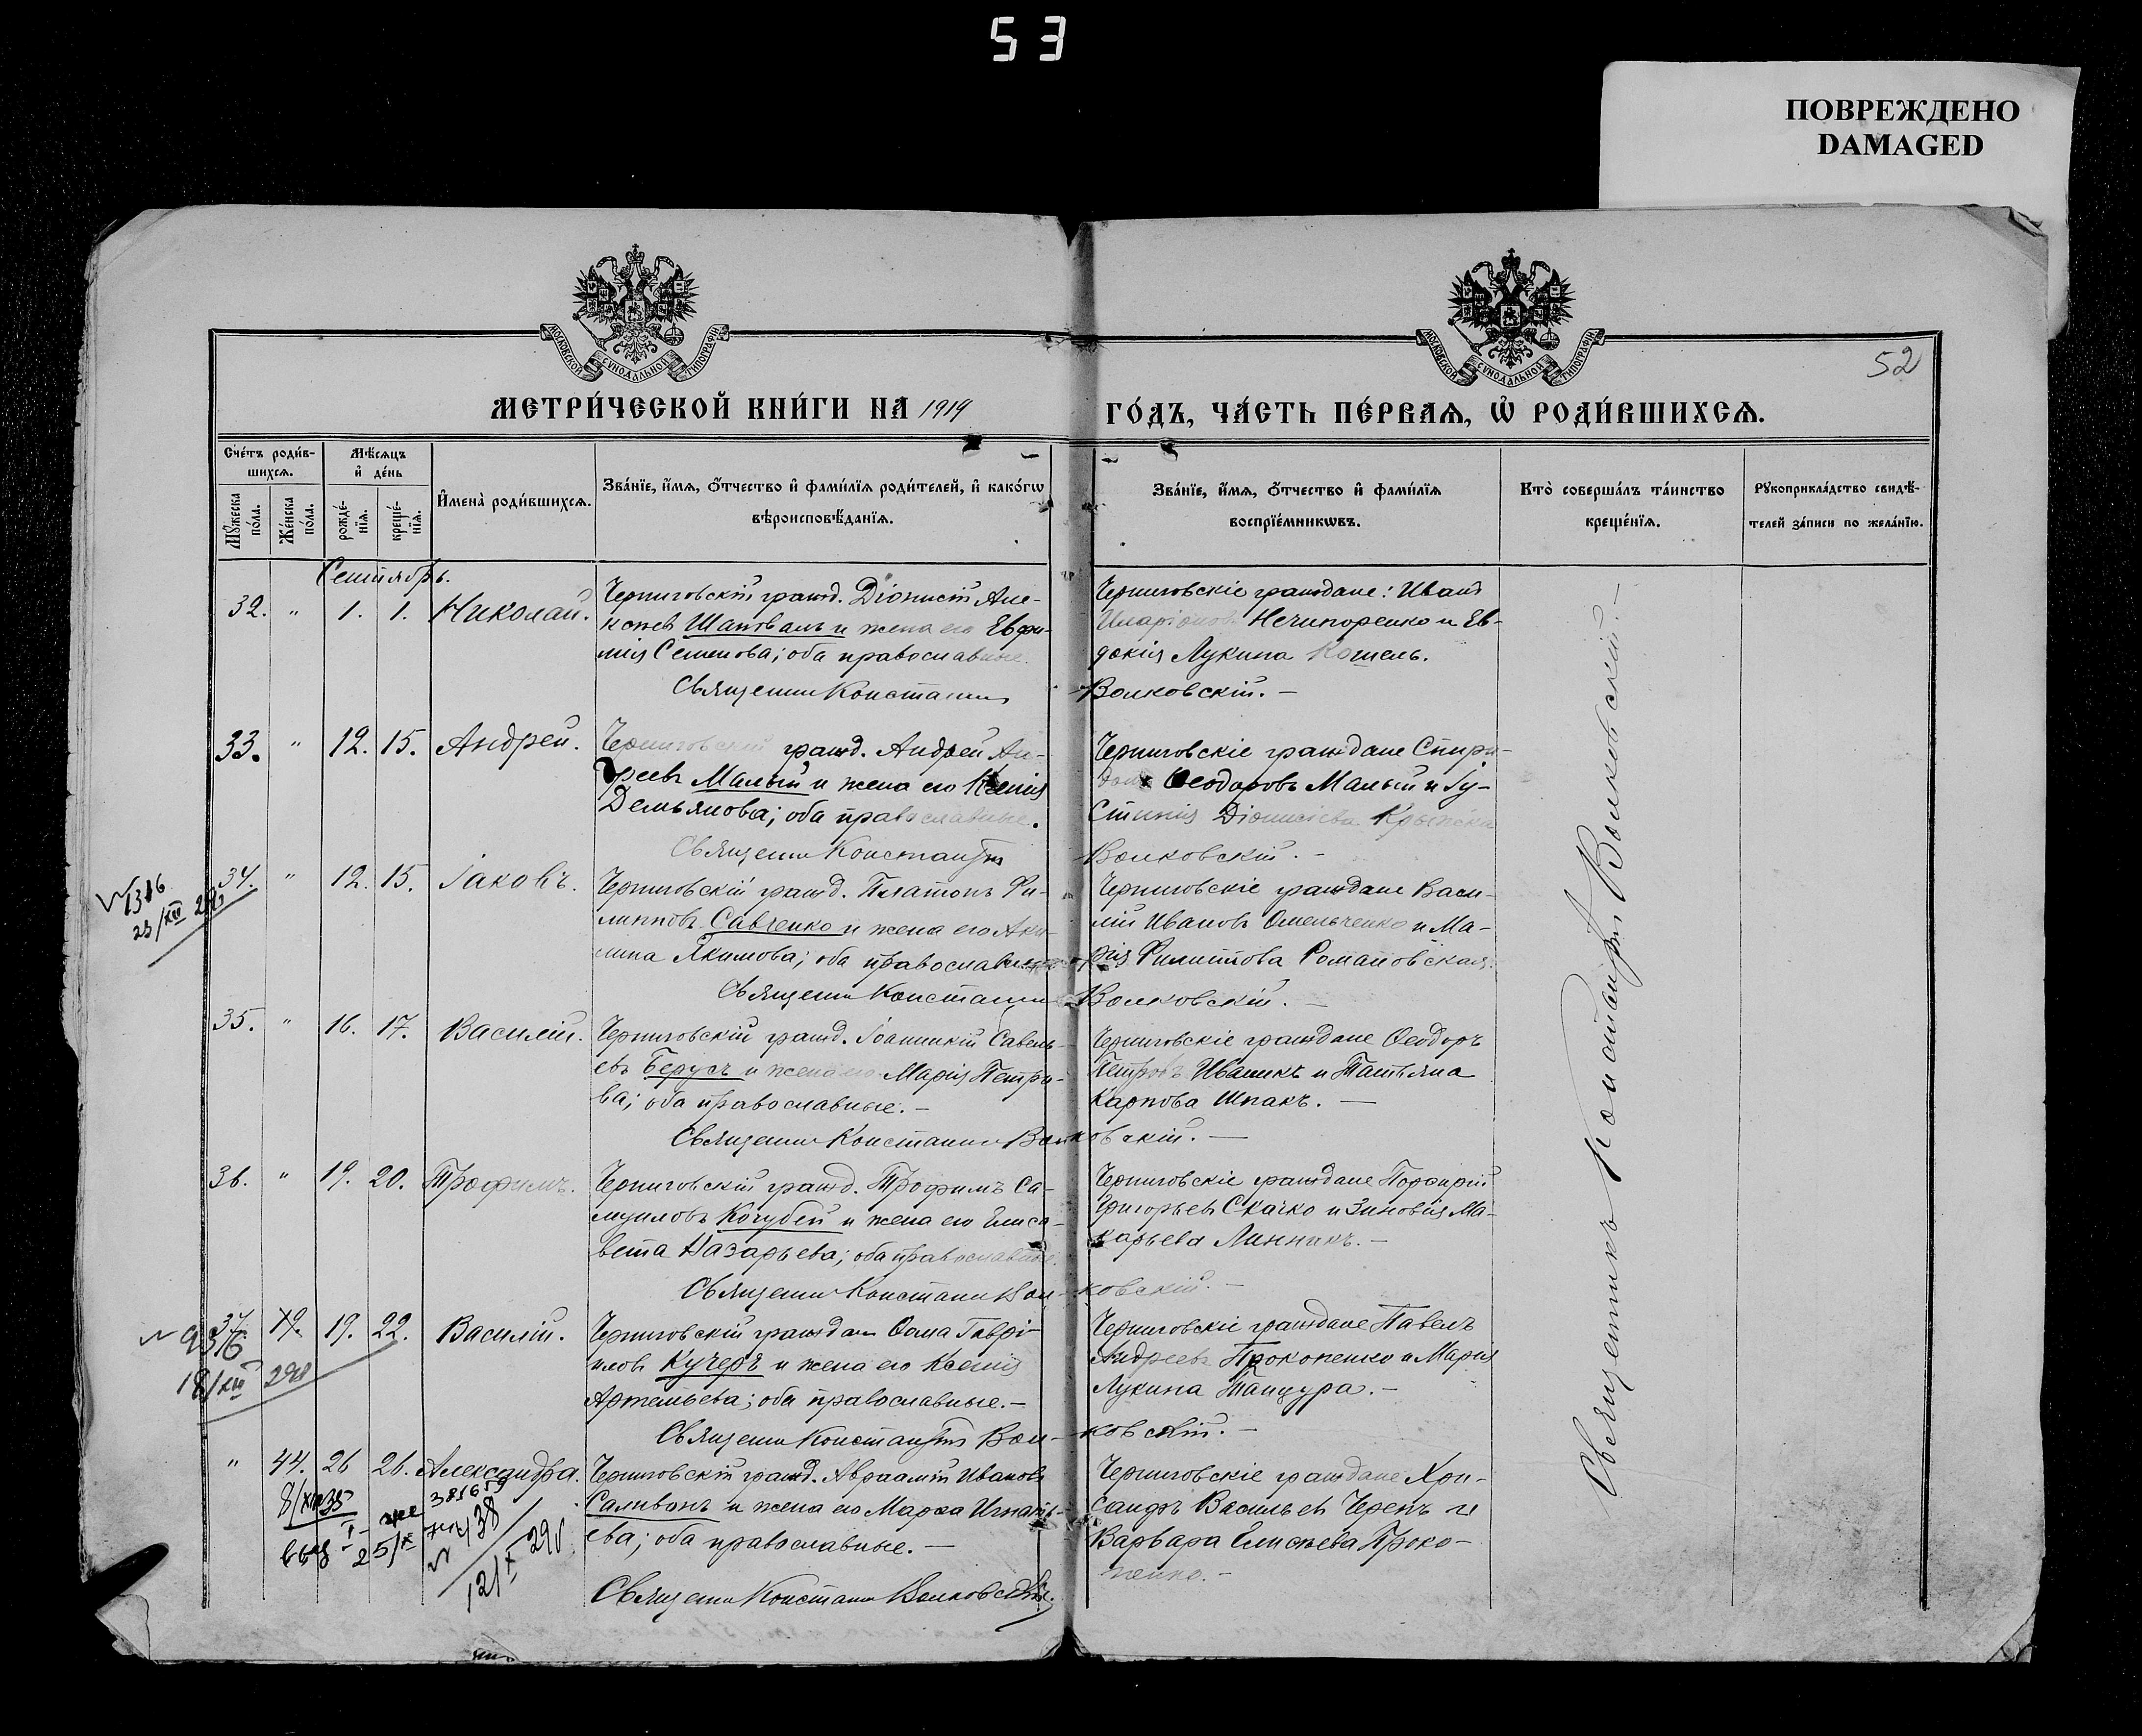 53
ПОВРЕЖДЕНО
DAMAGED
52
МОСКОВСКОЙ СѴНОДАЛЬНОЙ ТИПОГРАФІИ
МОСКОВСКОЙ СѴНОДАЛЬНОЙ ТИПОГРАФІИ
МЕТРИ́ЧЕСКОЙ КНИ́ГИ НА 1919
ГО́ДЪ, ЧА́СТЬ ПЕ́РВАѦ, Ѡ҆ РОДИ́ВШИХСѦ.
Сче́тъ роди́в-
шихсѧ.
Мѣ́сѧцъ
и҆ де́нь
Мꙋ́жеска по́ла.
Же́нска по́ла.
рожде́-нїѧ.
креще́-нїѧ.
И҆мена̀ роди́вшихсѧ.
Зва́нїе, и҆́мѧ, ѻ҆́тчество и҆ фами́лїѧ роди́телей, и҆ како́гѡ
вѣроисповѣ́данїѧ.
Зва́нїе, и҆́мѧ, ѻ҆́тчество и҆ фами́лїѧ
воспрїе́мникѡвъ.
Кто̀ соверша́лъ та́инство
креще́нїѧ.
Рꙋкоприкла́дство свидѣ́-
телей за́писи по жела́нїю.
Сентябрь.
32. " 1. 1. Николай.
Черниговскій гражд. Діонисій Але-
ксѣевъ Шаповалъ и жена его Евфи-
мія Семенова; оба православные.
Черниговскіе граждане: Иванъ
Иларіоновъ Нечипоренко и Ев-
докія Лукина Кошель.
Священник Константин Волковскій. —
33. " 12. 15. Андрей.
Черниговскій гражд. Андрей Ан-
дреевъ Малый и жена его Ксенія
Демьянова; оба православные.
Черниговскіе граждане Спири-
донъ Ѳеодоровъ Малый и Іу-
стинія Діонисіева
Священник Константинъ Волковскій. —
34. " 12. 15. Іаковъ.
Черниговскій гражд. Платонъ Фи-
липповъ Савченко и жена его Аки-
лина Якимова; оба православные
Черниговскіе граждане Васи-
лій Ивановъ Омельченко и Ма-
рія Филиппова Романовская.
1316
23/XII
Священник Константин Волковскій. —
35. " 16. 17. Василій.
Черниговскій гражд. Іоанникій Савель-
евъ Берусъ и жена его Марія Петро-
ва; оба православные. —
Черниговскіе граждане Ѳеодоръ
Петровъ Иваникъ и Татьяна
Карпова Шпакъ. —
Священник Константин Волковскій. —
36. " 19. 20. Трофимъ.
Черниговскій гражд. Трофимъ Са-
муиловъ Кочубей и жена его Елиса-
вета Назарьева; оба православные.
Черниговскіе граждане Порфирій
Григорьевъ Скачко и Зиновія Ма-
карьева Линникъ. —
Священник Константин Волковскій. —
37. 19. 22. Василій.
Черниговскій граждан Ѳома Гаврі-
иловъ Кучеръ и жена его Ксенія
Артемьева; оба православные. —
Черниговскіе граждане Павелъ
Андреевъ Прокопенко и Марія
Лукина Танцура. —
18/XII
Священник Константинъ Волковскій. —
" 44. 26 26. Александра.
Черниговскій гражд. Авраамій Ивановъ
Саливонъ и жена его Марѳа Игнать-
ева; оба православные. —
Черниговскіе граждане Хри-
санфъ Васильевъ Черепъ и
Варвара Елисѣева Проко-
пенко. —
381659
25/X
12/X
Священник Константин Волковскій.
Священникъ Константинъ Волковскій. —